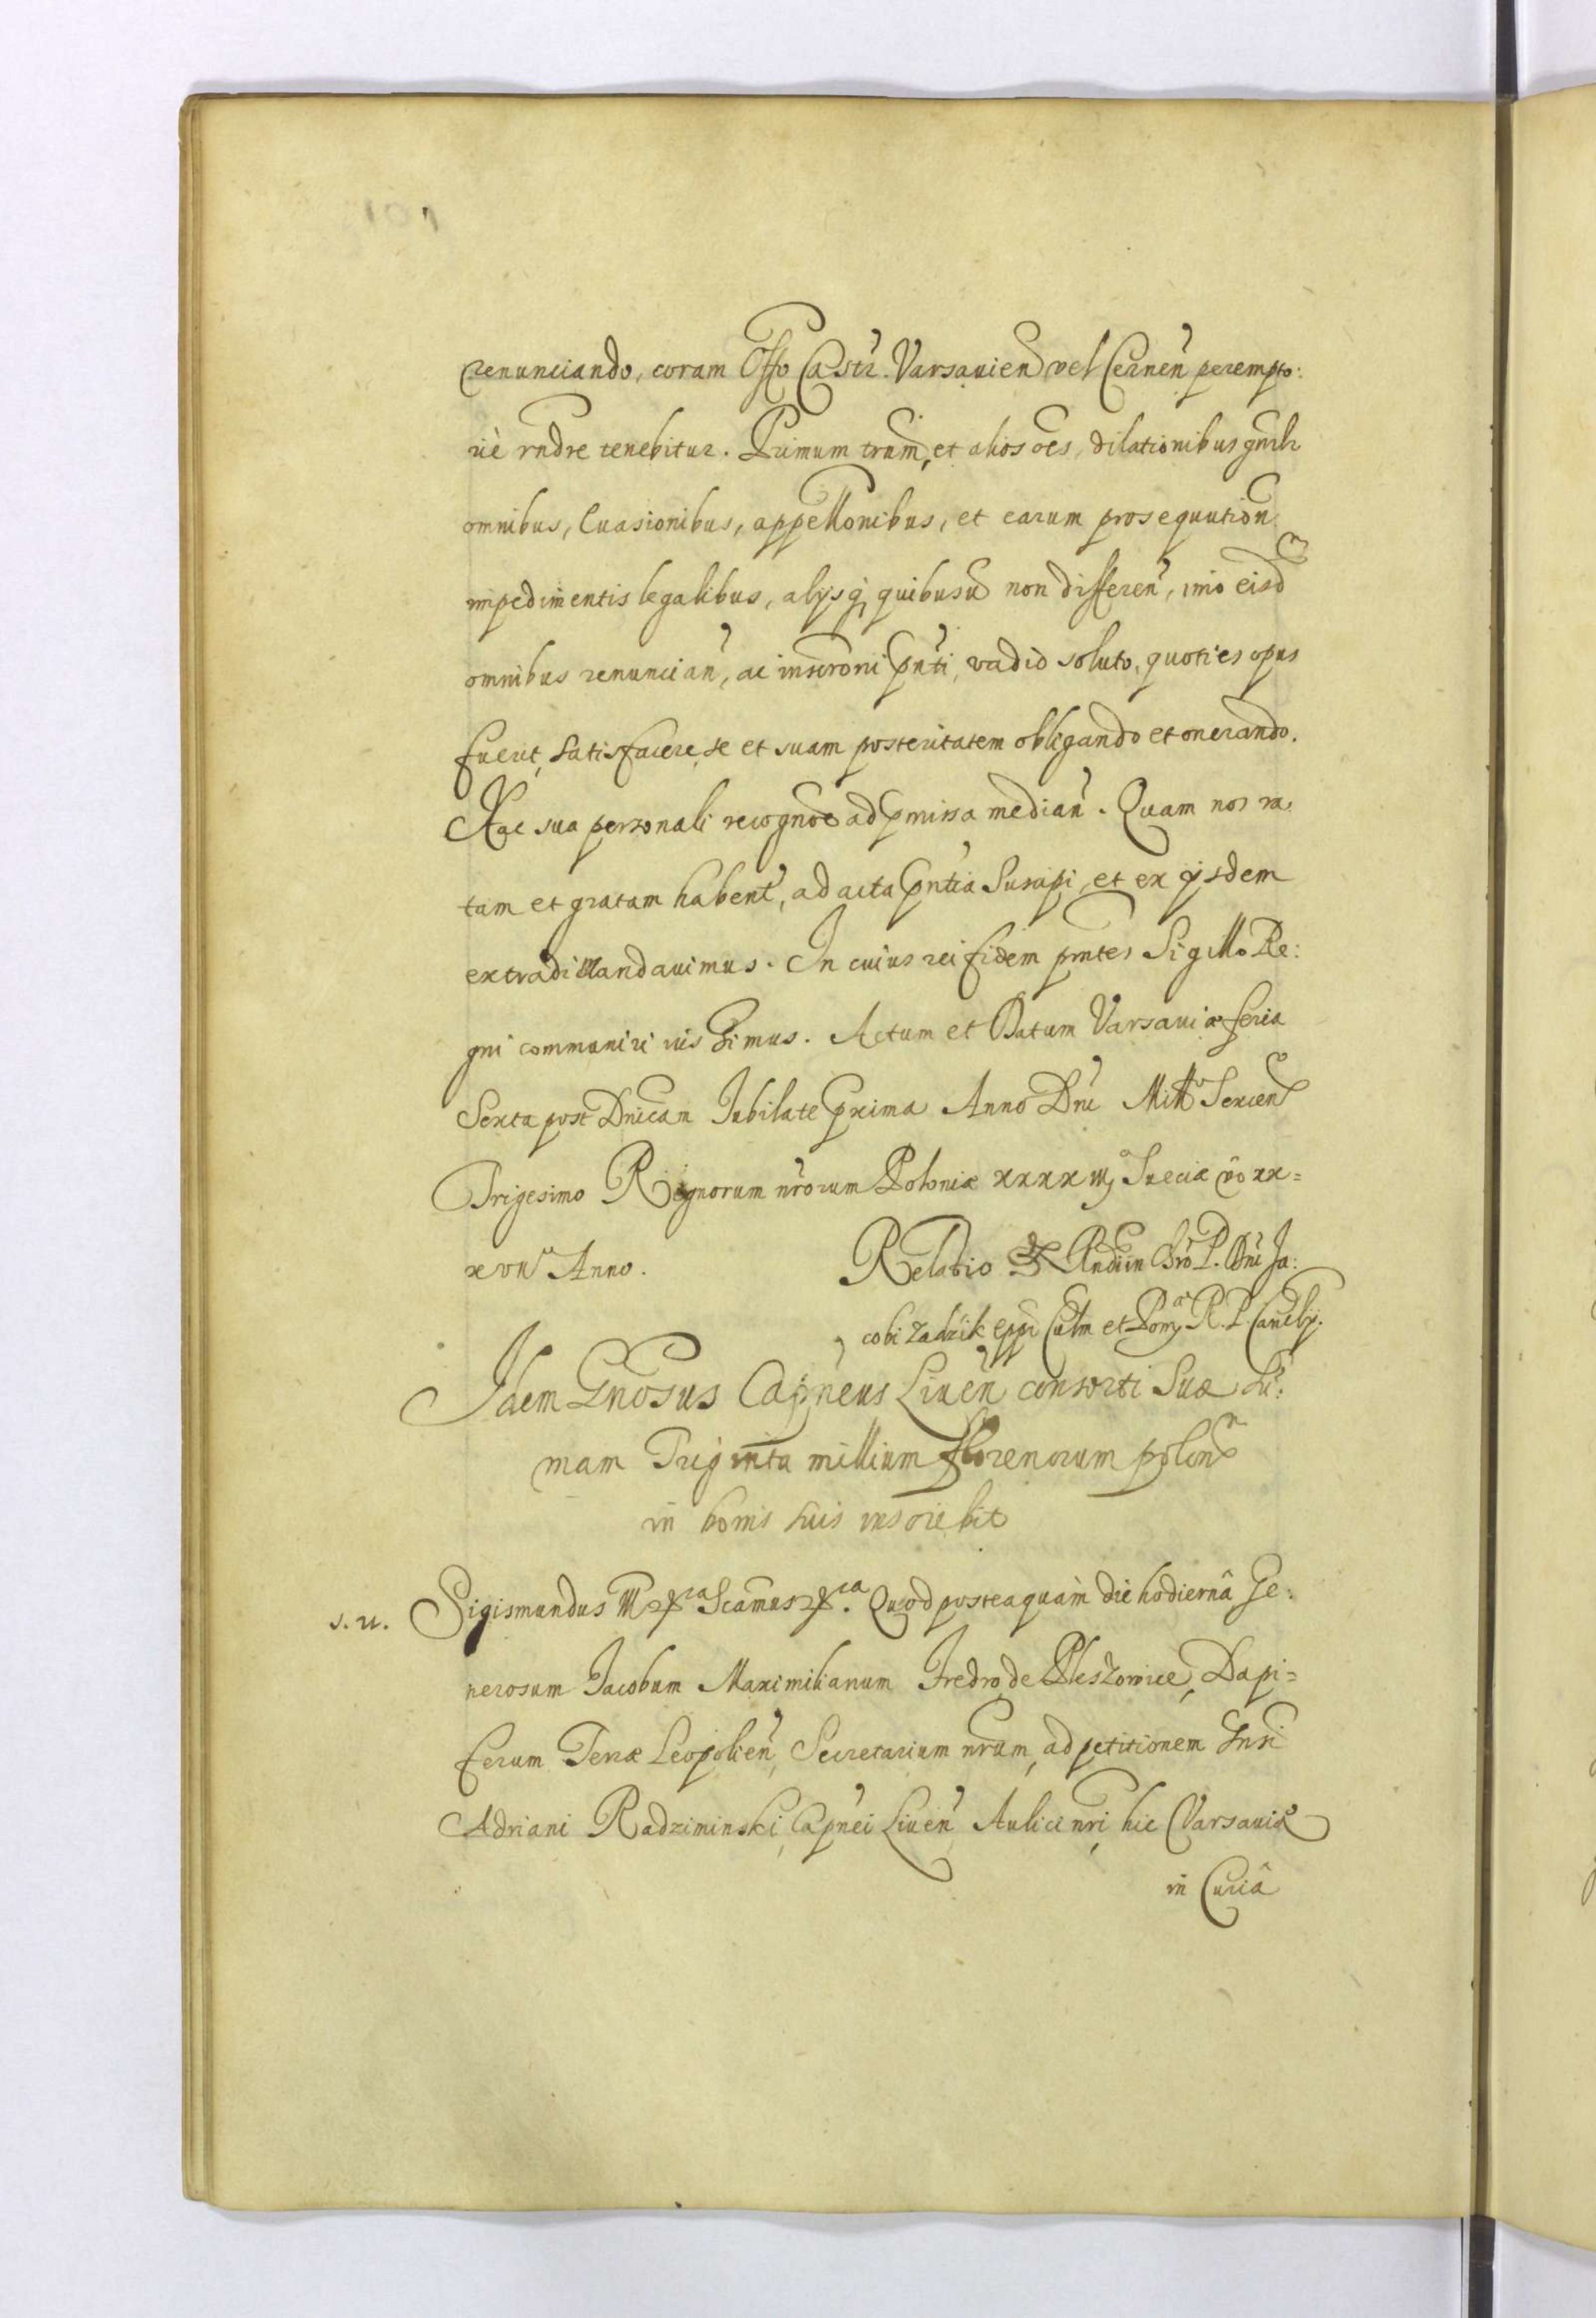 renunciando, coram Offo Castr. Varsauien vel Cernen perempto:
riè rndre tenebitur. Primum trnum, et alios oes, dilationibus gnrlr
omnibus, Euasionibus, appellonibus, et earum prosequution
impedimentis legalibus, alijsq quibusu non differen, imo eisd
omnibus renuncian, ac inscroni pnti, vadio soluto, quoties opus
fuerit, satisfacere, se et suam posteritatem obligando et onerando.
Hac sua personali recogne ad pmissa median. Quam nos ra:
tam et gratam haben, ad acta pntia Suscipi, et ex ijsdem
extradi Mandauimus. In cuius rei fidem pntes Sigillo Re:
gni communiri iussimus. Actum et Datum Varsauiæ feria
Sexta post Dnicam Iubilate prima Anno Dni Millo Sexcen
Trigesimo Regnorum nrorum Poloniæ xxxxiij Sueciæ vo xx=
xvij Anno.
Relatio Rndi in Chro P. Dni Ja:
cobi Zadzik Eppi Culm et Pom R. P. Cancelrij.
Idem Gnosus Capneus Liuen consorti Suæ Su:
mam Triginta millium florenorum polon
in bonis suis inscribit
s. u. Sigismundus III Scamus Quod posteaquàm die hodiernâ Ge:
nerosum Jacobum Maximilianum Fredro de Pleszowice, Dapi=
ferum Terræ Leopolien, Secretarium nrum, ad petitionem Gnsi
Adriani Radziminski, Capnei Liuen Aulici nri, hic Varsauiæ
in Curiâ